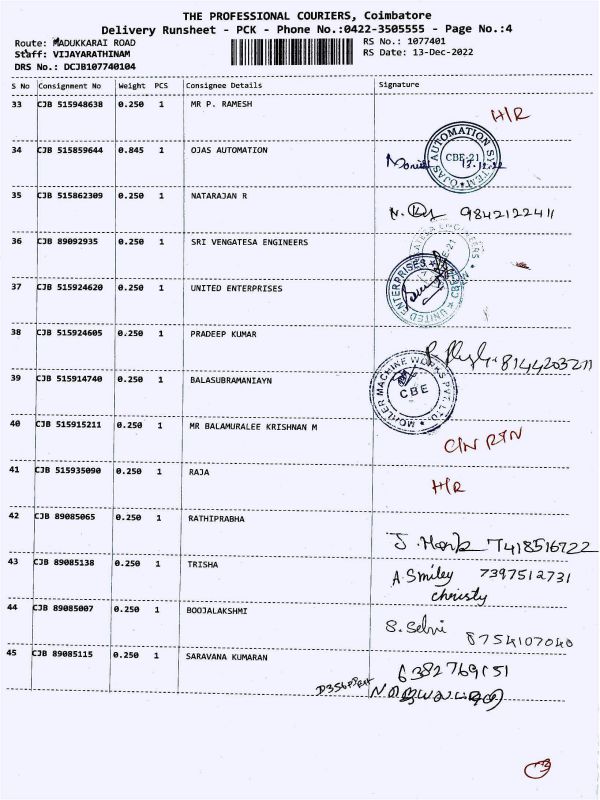 THE PROFESSIONAL COURIERS, Coimbatore
Delivery Runsheet - PCK - Phone No.:0422-3505555 - Page No.:4
Route: MADUKKARAI ROAD RS No.: 1077401
Staff: VIJAYARATHINAM RS Date: 13-Dec-2022
DRS No.: DCJB107740104
S No Consignment No Weight PCS Consignee Details Signature
33 CJB 515948638 0.250 1 MR P. RAMESH H/R
34 CJB 515859644 0.845 1 OJAS AUTOMATION
OJAS AUTOMATION SYSTEM
CBE-21
35 CJB 515862309 0.250 1 NATARAJAN R 9842122411
36 CJB 89092935 0.250 1 SRI VENGATESA ENGINEERS
ENGINEERS
37 CJB 515924620 0.250 1 UNITED ENTERPRISES
UNITED ENTERPRISES
38 CJB 515924605 0.250 1 PRADEEP KUMAR 8144203211
39 CJB 515914740 0.250 1 BALASUBRAMANIAYN
MACHINE WORKS PVT. LTD.
CBE
40 CJB 515915211 0.250 1 MR BALAMURALEE KRISHNAN M
41 CJB 515935090 0.250 1 RAJA H/R
42 CJB 89085065 0.250 1 RATHIPRABHA
7418516722
43 CJB 89085138 0.250 1 TRISHA A. Smiley 7397512731
christy
44 CJB 89085007 0.250 1 BOOJALAKSHMI S. Selvi 8754107040
45 CJB 89085115 0.250 1 SARAVANA KUMARAN 6382769151